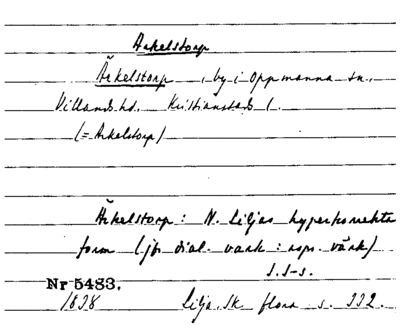 Arkelstorp
Ärkelstorp, by i Oppmanna sn.,
Villands hd. Kristianstads l.
(= Arkelstorp)
Ärkelstorp: N. Liljas hyperkorrekta
form (jfr dial. vark : rspr. värk)
S.I-s.
Nr 5483.
1838 Lilja Sk flora s. 332.